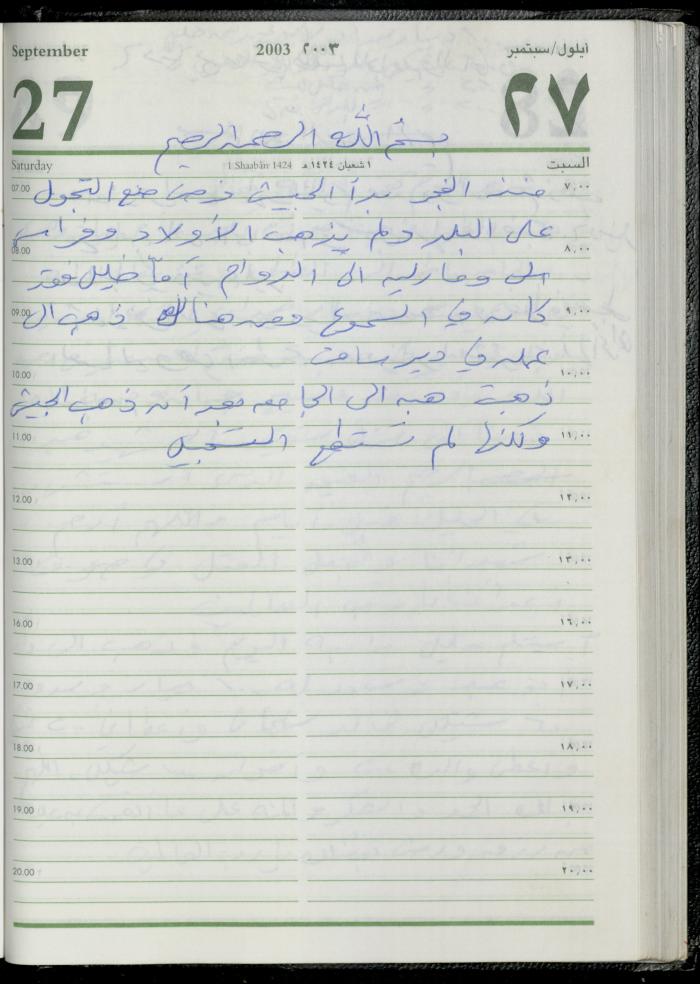 September 2003 ٢٠٠٣ أيلول/سبتمبر
27 ٢٧
بسم الله الرحمن الرحيم
Saturday 1 Shaabān 1424 ١ شعبان ١٤٢٤ هـ السبت
07.00 منذ الفجر بدأ الجيش فرض منع التجول ٧,٠٠
على البلد ولم يذهب الأولاد وفراس
08.00 ٨,٠٠
الى الدوام أما خليل فقد
09.00 كان في السموع ومن هناك ذهب الى ٩,٠٠
عمله في دير سامت
10.00 ١٠,٠٠
ذهبت هبه الى الجامعه بعد أن ذهب الجيش
11.00 ولكنها لم تستطع التسجيل ١١,٠٠
12.00 ١٢,٠٠
13.00 ١٣,٠٠
16.00 ١٦,٠٠
17.00 ١٧,٠٠
18.00 ١٨,٠٠
19.00 ١٩,٠٠
20.00 ٢٠,٠٠